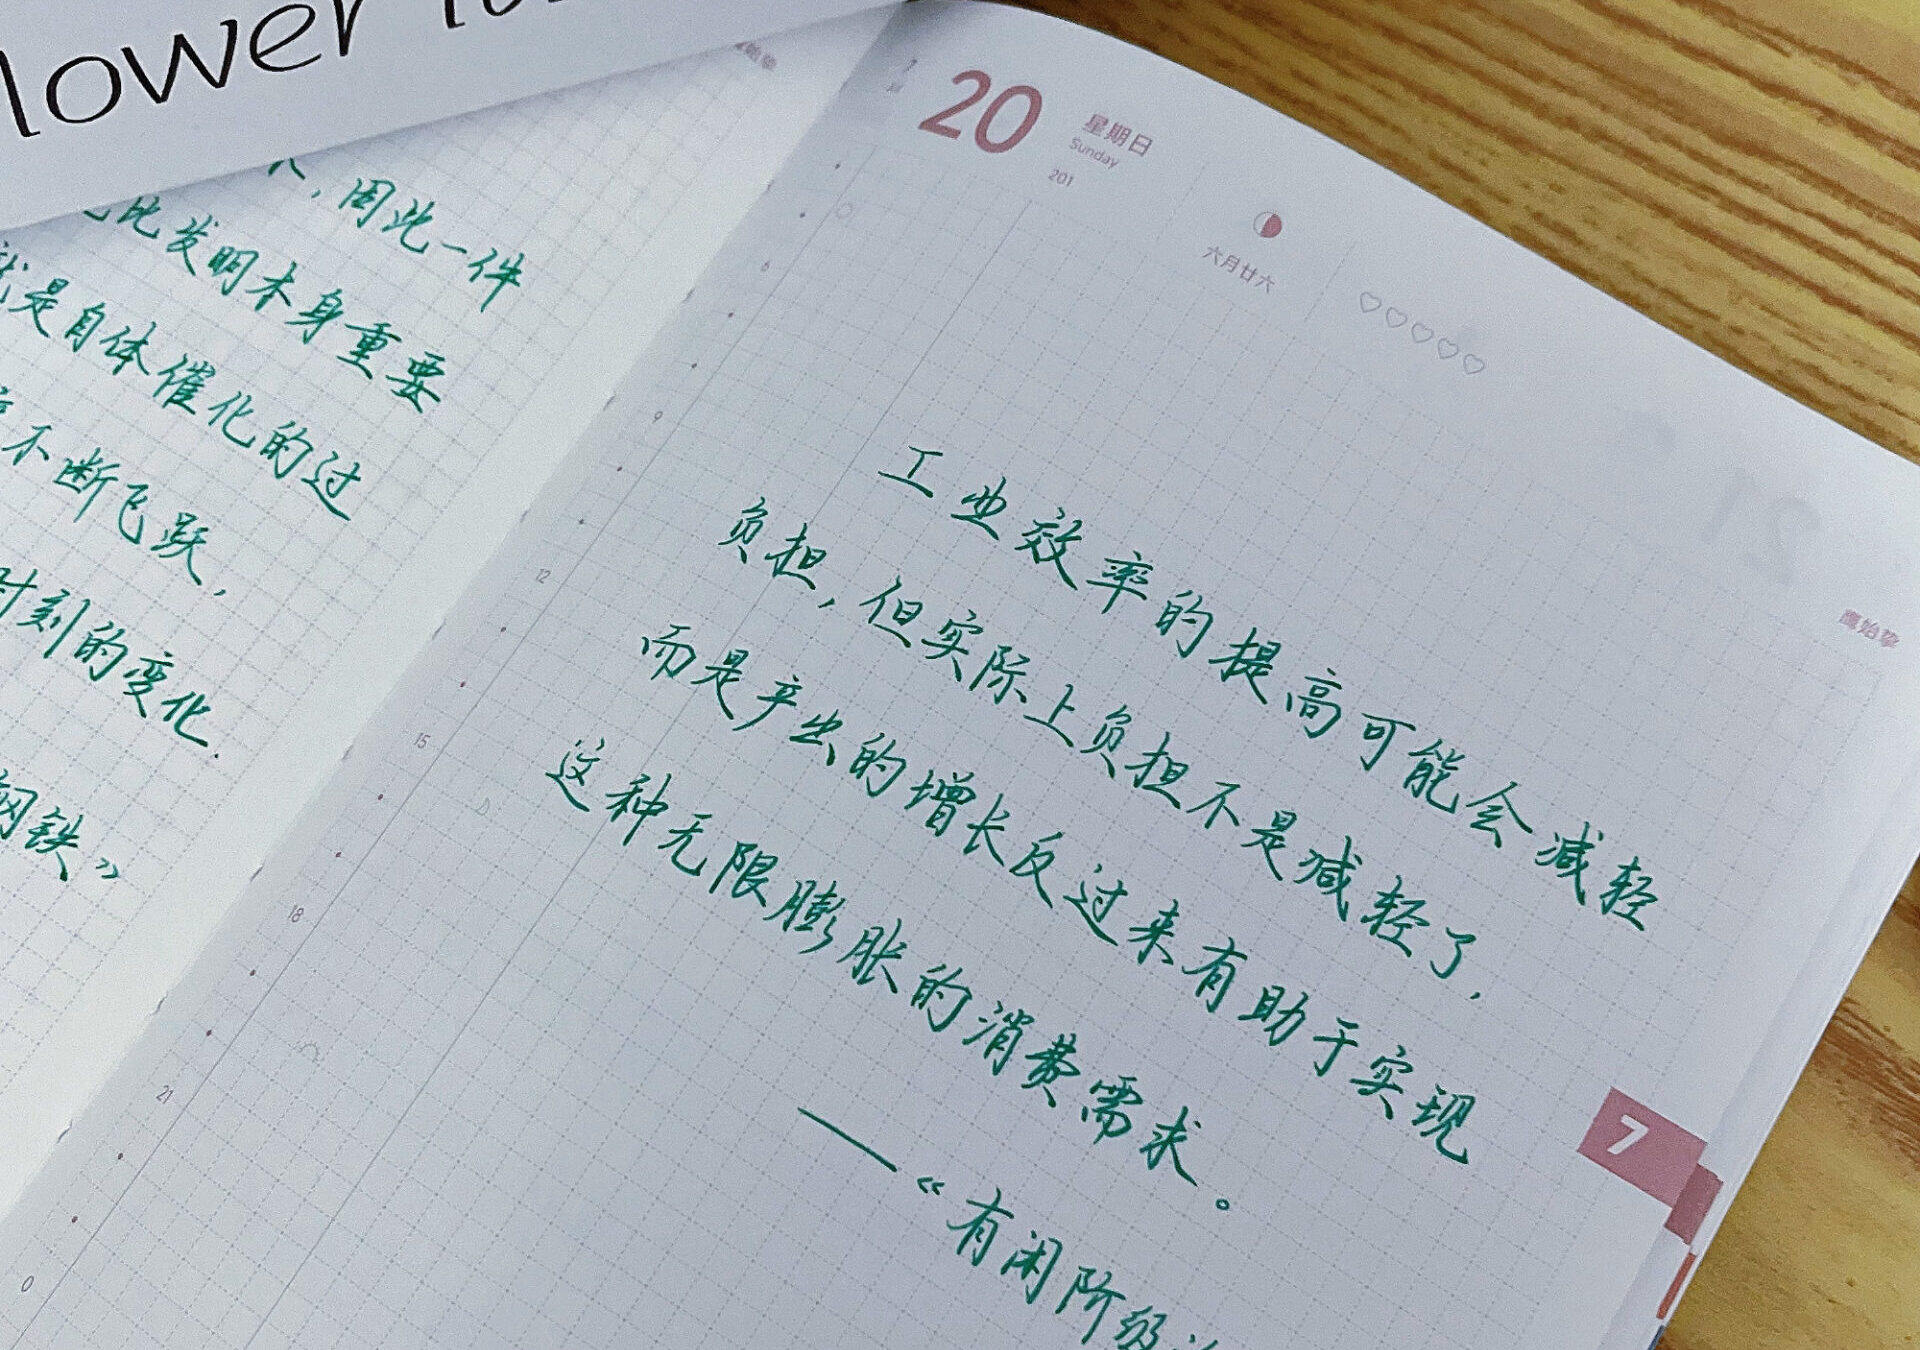 lower
，因此一件
比发明本身重要
就是自体催化的过
不断飞跃，
时刻的变化.
钢铁》
20
星期日
Sunday
201
六月廿六
鹰始挚
6
9
12
15
18
21
0
工业效率的提高可能会减轻
负担，但实际上负担不是减轻了，
而是产出的增长反过来有助于实现
这种无限膨胀的消费需求。
——《有闲阶级
7